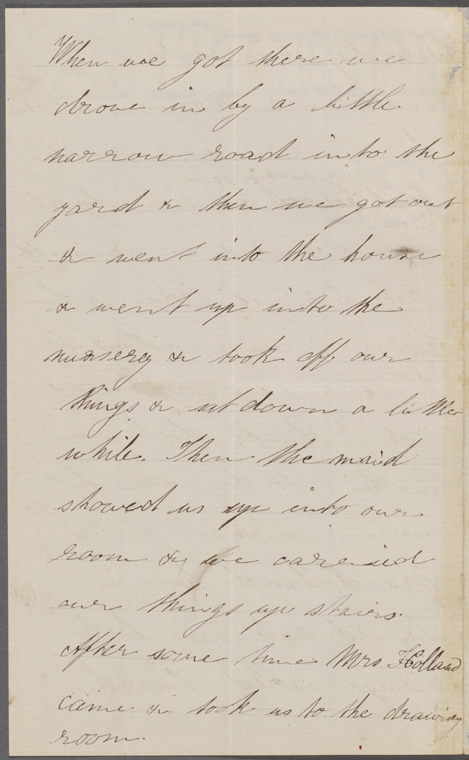 When we got there we
drove in by a little
narrow road into the
yard & then we got out
& went into the house
& went up into the
nursery & took off our
things & sat down a little
while. Then the maid
showed us up into our
room & we carried
our things up stairs.
After some time Mrs Holland
came & took us to the drawing
room.